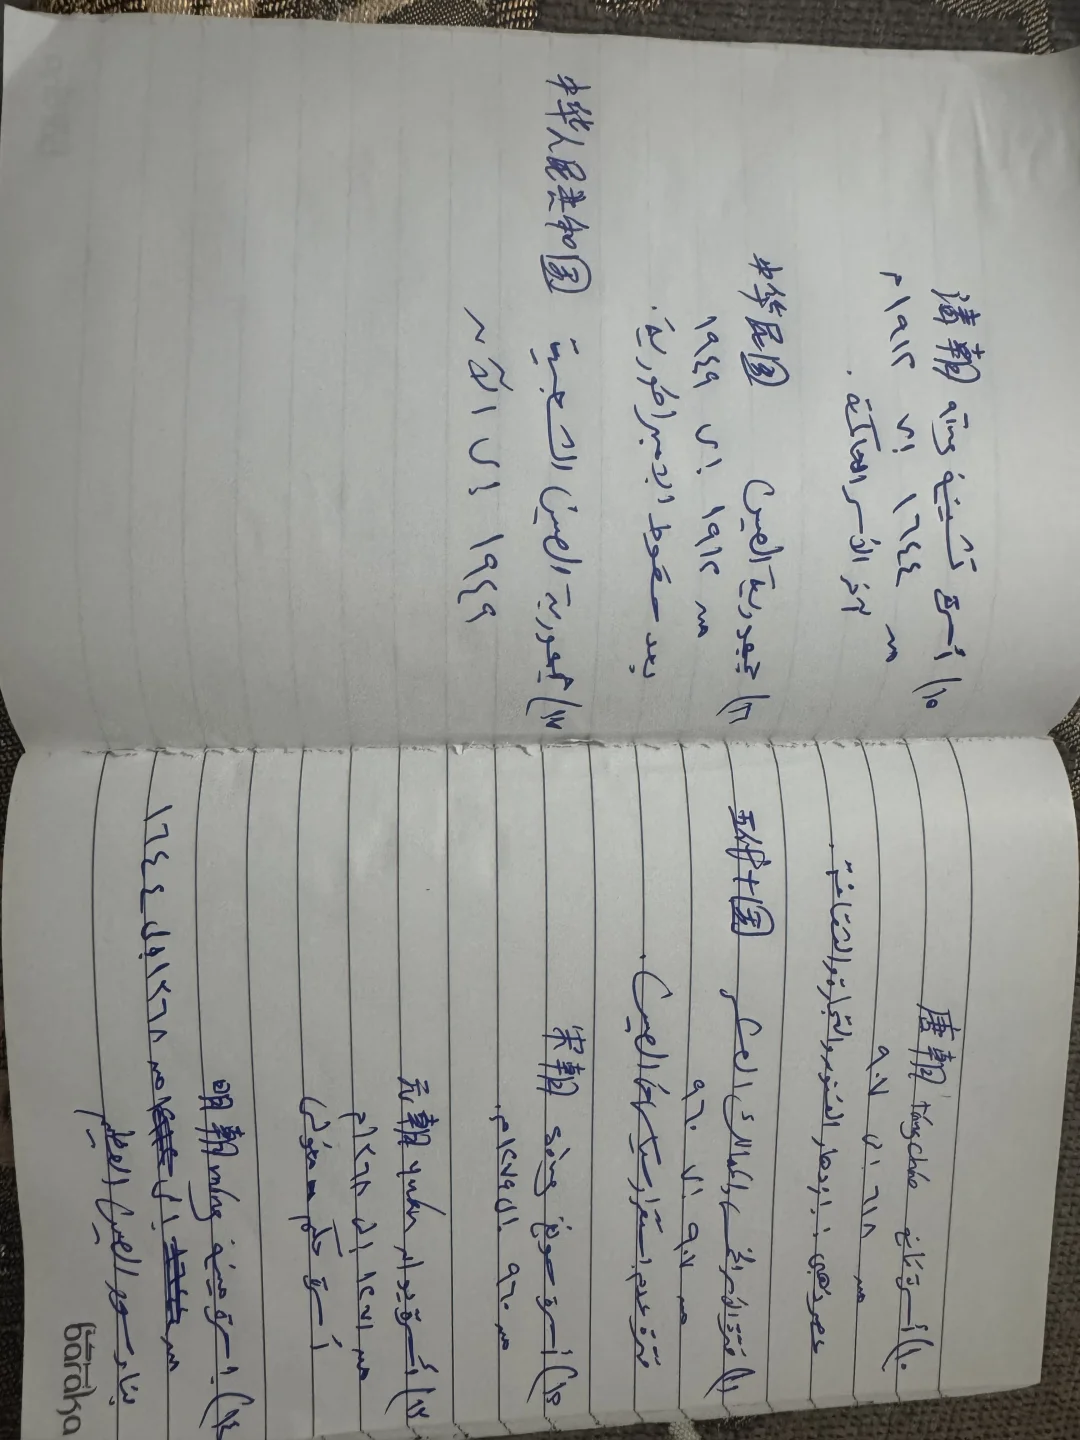 ١٠) أسرة تانغ 唐朝 tángcháo
من ٦١٨ إلى ٩٠٧
عصر ذهبي: ازدهار الشعر والتجارة والثقافة.
١١) فترة الأسر الخمس والممالك العشر 五代十国
من ٩٠٧ إلى ٩٦٠
فترة عدم استقرار سياسي الصين.
١٢) أسرة سونغ sòng 宋朝
من ٩٦٠ إلى ١٢٧٩م.
١٣) أسرة يوان yuán 元朝
من ١٢٧١ إلى ١٣٦٨م
أسرة حكم مغولي
١٤) أسرة مينغ míng 明朝
من إلى من ١٣٦٨ إلى ١٦٤٤
بناء سور الصين العظيم
baraka
١٥) أسرة تشينغ qīng 清朝
من ١٦٤٤ إلى ١٩١٢م
آخر الأسر الحاكمة.
١٦) جمهورية الصين 中华民国
من ١٩١٢ إلى ١٩٤٩
بعد سقوط الإمبراطورية.
١٧) جمهورية الصين الشعبية 中华人民共和国
١٩٤٩ إلى الآن ~